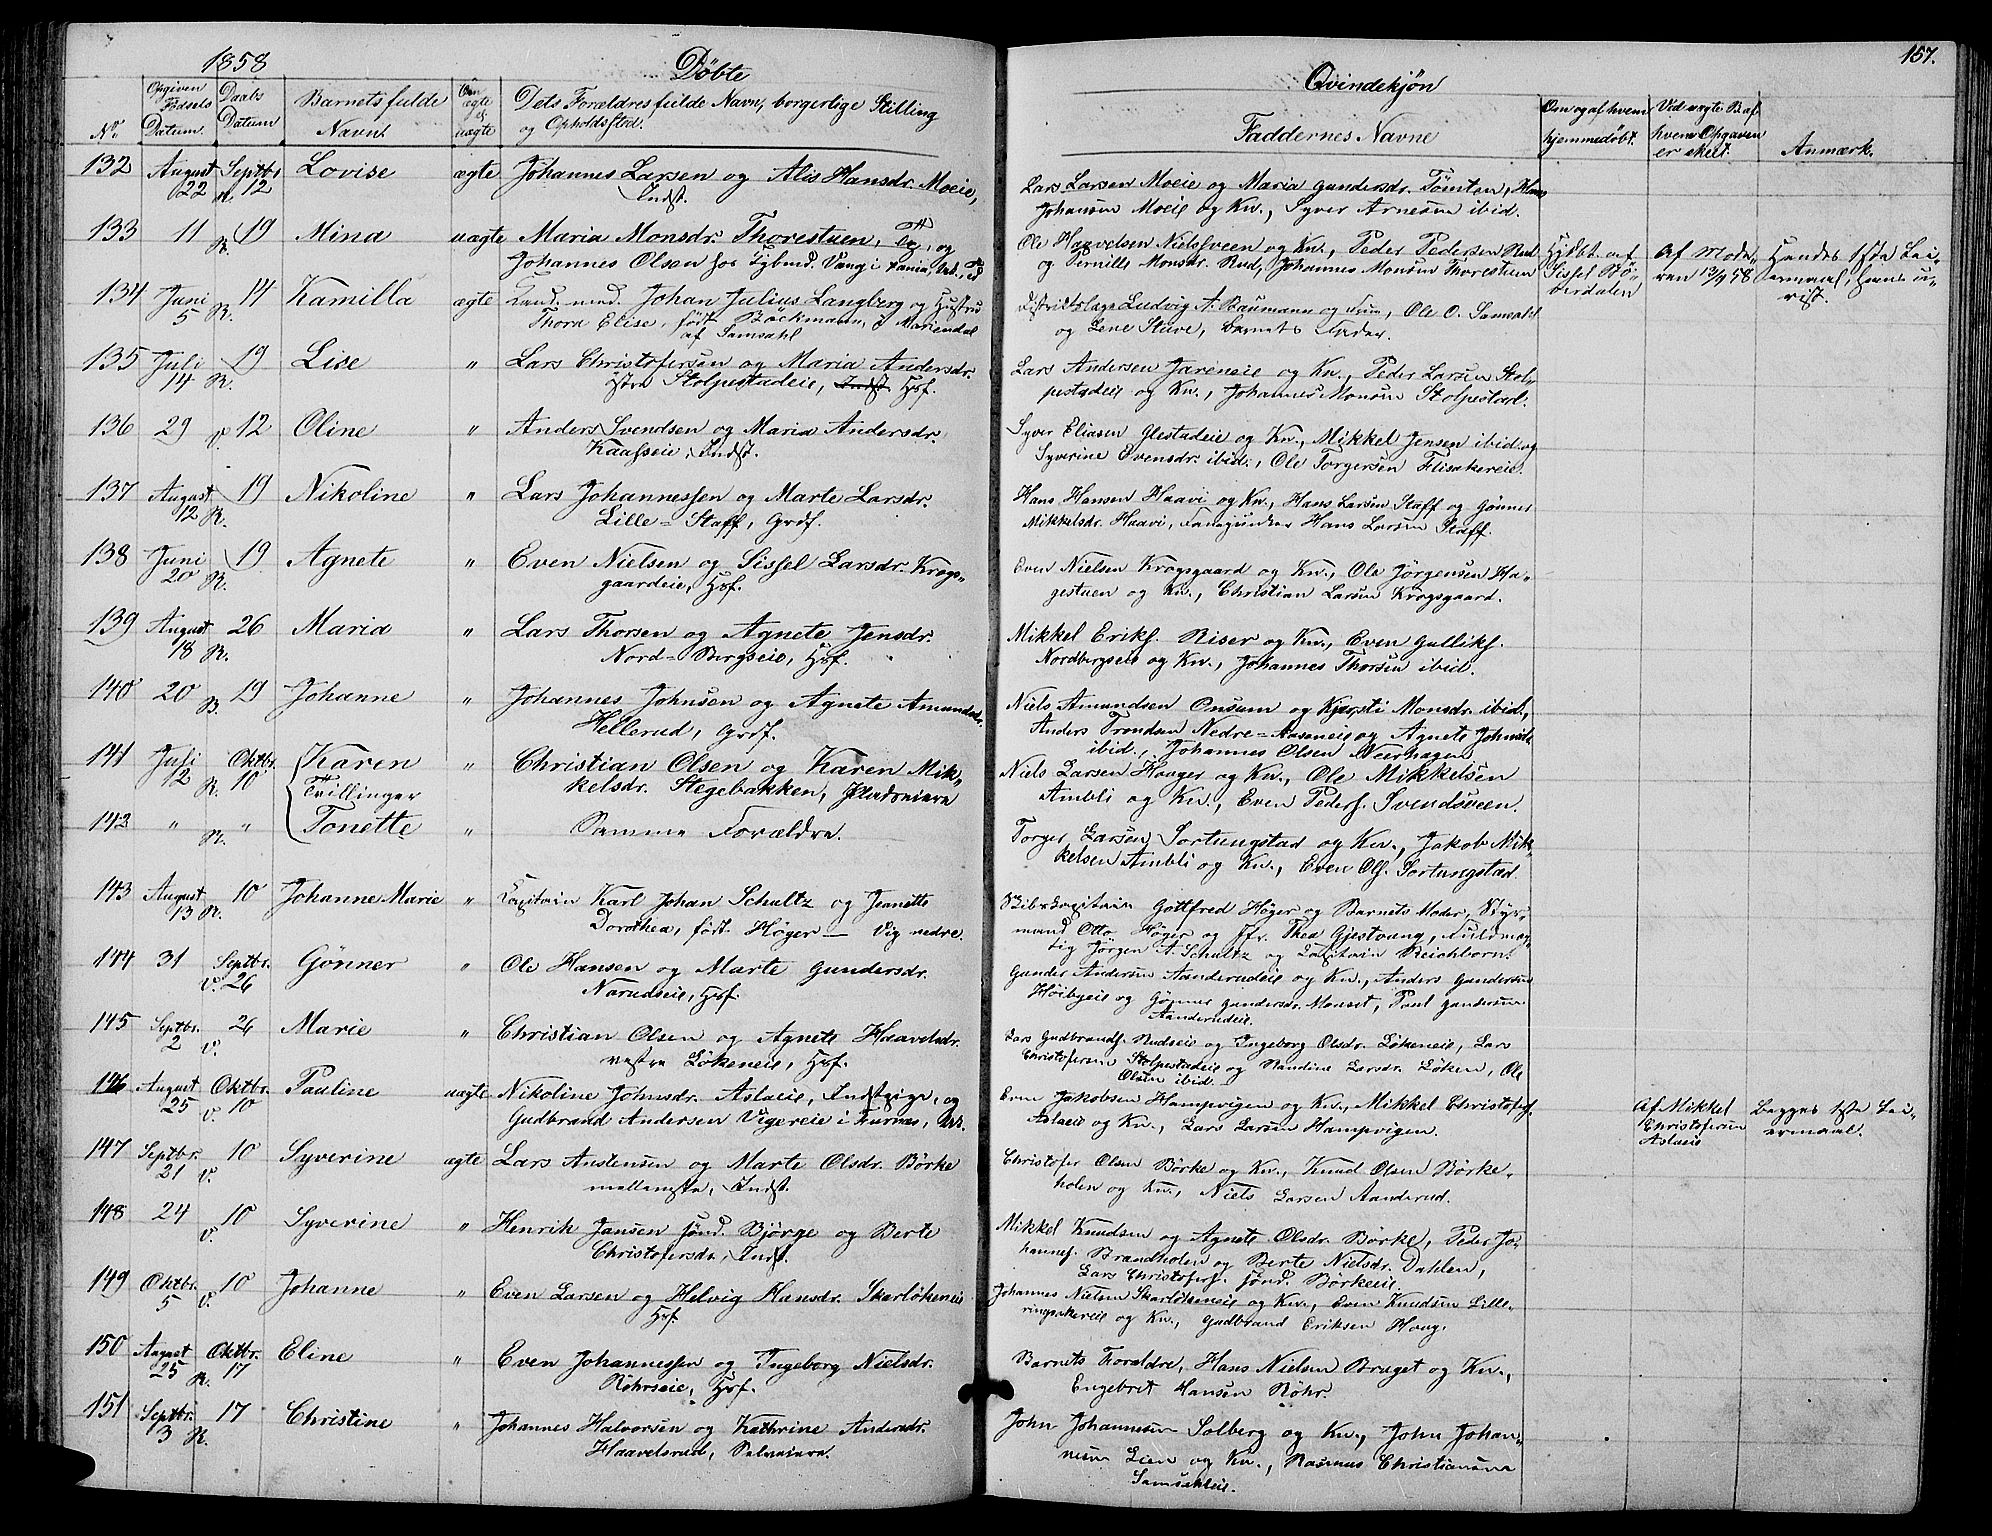 1858
Døbte
Qvindekjøn
157.
No.
Opgiven Fødsels Datum.
Daabs Datum
Barnets fulde Navn.
Om ægte el. uægte
Dets Forældres fulde Navn, borgerlige Stilling
og Opholdssted.
Faddernes Navne
Om og af hvem hjemmedøbt.
Ved uægte B. af hvem Opgaven er skeet.
Anmærk.
132 August 22 Septbr. 12 Lovise ægte Johannes Larsen og Alis Hansdr. Moeie,
Indst.
Lars Larsen Moeie og Maria Gundersdr. Tömten, Hans
Johansen Moeie og Kn., Syver Arnesen ibid.
133 11 R. 19 Mina uægte Maria Monsdr. Thorestuen, og
Johannes Olsen Vang i
Ole Haavelsen Nielsveen og Kn., Peder Pedersen Rud
og Pernille Monsdr. Rud, Johannes Monsen Thorestuen
Hjdbt. af
Sissel
Af Mode-
ren 12/9 58
Hendes 1ste Lei-
ermaal, hans u-
vist.
134 Juni 5 R. 14 Kamilla ægte Cand. med. Johan Julius Langberg og Hustru
Thora Elise, født Böckmann, i Mariendal
af Samsahl
Distriktslæge Ludvig A. Baumann og Frue, Ole O. Samsahl
og Lene Stuve, Barnets Fader.
135 Juli 14 R. 19 Lise " Lars Christofersen og Maria Andersdr.
östre Stolpestadeie, Indst. Hsf.
Lars Andersen Jareneie og Kn., Peder Larsen Stol-
pestadeie og Kn., Johannes Monsen Stolpestad.
136 29 V. 12 Oline " Anders Svendsen og Maria Andersdr.
Kaafseie, Indst.
Syver Eliasen Glestadeie og Kn., Mikkel Jensen ibid. og
Syverine Evensdr. ibid., Ole Torgersen Flisakereie.
137 August 12 R. 19 Nikoline " Lars Johannessen og Marte Larsdr.
Lille-Staff, Grdf.
Hans Hansen Haavi og Kn., Hans Larsen Staff og Gönner
Mikkelsdr. Haavi, Hans Larsen Staff.
138 Juni 20 R. 19 Agnete " Even Nielsen og Sissel Larsdr. Krogs-
gaardeie, Hsf.
Even Nielsen Krogsgaard og Kn., Ole Jörgensen Ha-
gestuen og Kn., Christian Larsen Krogsgaard.
139 August 18 R. 26 Maria " Lars Thorsen og Agnete Jensdr.
Nord-Bergseie, Hsf.
Mikkel Eriks. Riser og Kn., Even Gulliks.
Nordbergseie og Kn., Johannes Thorsen ibid.
140 20 B. 19 Johanne " Johannes Johnsen og Agnete Amundsdr.
Hellerud, Grdf.
Niels Amundsen Onsum og Kjersti Monsdr. ibid.,
Anders Trondsen Nedre-Aaseneie og Agnete Johnsdr.
ibid., Johannes Olsen Neerhagen
141 Juli 12 R. Oktbr. 10 Karen " Christian Olsen og Karen Mik-
Tvillinger
kelsdr. Stegebakken, Pladseiere
Niels Larsen Haager og Kn., Ole Mikkelsen
Ambli og Kn., Even Peders. Svendsveen.
142 " R. " Tonette " Samme Forældre.
Torger Larsen Sortungstad og Kn., Jakob Mik-
kelsen Ambli og Kn., Even Ols. Sortungstad.
143 August 13 R. 10 Johanne Marie " Capitain Karl Johan Schultz og Jeanette
Dorothea, født Höger – Vig nedre.
Skibskapitain Gottfred Höger og Barnets Moder, Styr-
mand Otto Höger og Jfr. Thea Gjestvang, Fuldmæg-
tig Jörgen A. Schultz og Capitain Reichborn.
144 31 Septbr. V. 26 Gönner " Ole Hansen og Marte Gundersdr.
Narudseie, Hsf.
Gunder Andersen Aanderudeie og Kn., Anders Gundersen
Höibyeie og Gönner Gundersdr. Monset, Paul Gundersen
Aanderudeie.
145 Septbr. 2 V. 26 Marie " Christian Olsen og Agnete Haavelsdr.
vestre Lökeneie, Hsf.
Lars Gudbrands. Rudseie og Ingeborg Olsdr. Lökeneie, Lars
Christofersen Stolpestadeie og Randine Larsdr. Löken, Ole
Olsen ibid.
146 August 25 V. Oktbr. 10 Pauline uægte Nikoline Johnsdr. Aslaeie, Indstpige, og
Gudbrand Andersen Vigereie i Furnæs,
Even Jakobsen Hampvigen og Kn., Mikkel Christofers.
Aslaeie og Kn., Lars Larsen Hampvigen.
Af Mikkel
Christofersen
Aslaeie
Begges 1ste Lei-
ermaal.
147 Septbr. 21 V. 10 Syverine ægte Lars Anstensen og Marte Olsdr. Börke
mellemste, Indst.
Christofer Olsen Börke og Kn., Knud Olsen Börke-
holen og Kn., Niels Larsen Aanderud.
148 24 V. 10 Syverine " Henrik Jansen sönd. Björge og Berte
Christofersdr., Indst.
Mikkel Knudsen og Agnete Olsdr. Börke, Peder Jo-
hannes. Brandholen og Berte Nielsdr. Dahlen,
Lars Christofers. sönd. Börkeeie.
149 Oktbr. 5 V. 10 Johanne " Even Larsen og Helvig Hansdr. Skarlökeneie
Hsf.
Johannes Nielsen Skarlökeneie og Kn., Even Knudsen Lille-
ringsakereie og Kn., Gudbrand Eriksen Haug.
150 August 25 R. Oktbr. 17 Eline " Even Johannessen og Ingeborg Nielsdr.
Röhrseie, Hsf.
Barnets Forældre, Hans Nielsen Bruget og Kn.,
Engebret Hansen Röhr.
151 Septbr. 3 R. 17 Christine " Johannes Halvorsen og Kathrine Andersdr.
Haavelsrud, Selveiere.
John Johannesen Solberg og Kn., John Johan-
nesen Lien og Kn., Rasmus Christiansen
Samsahleie.